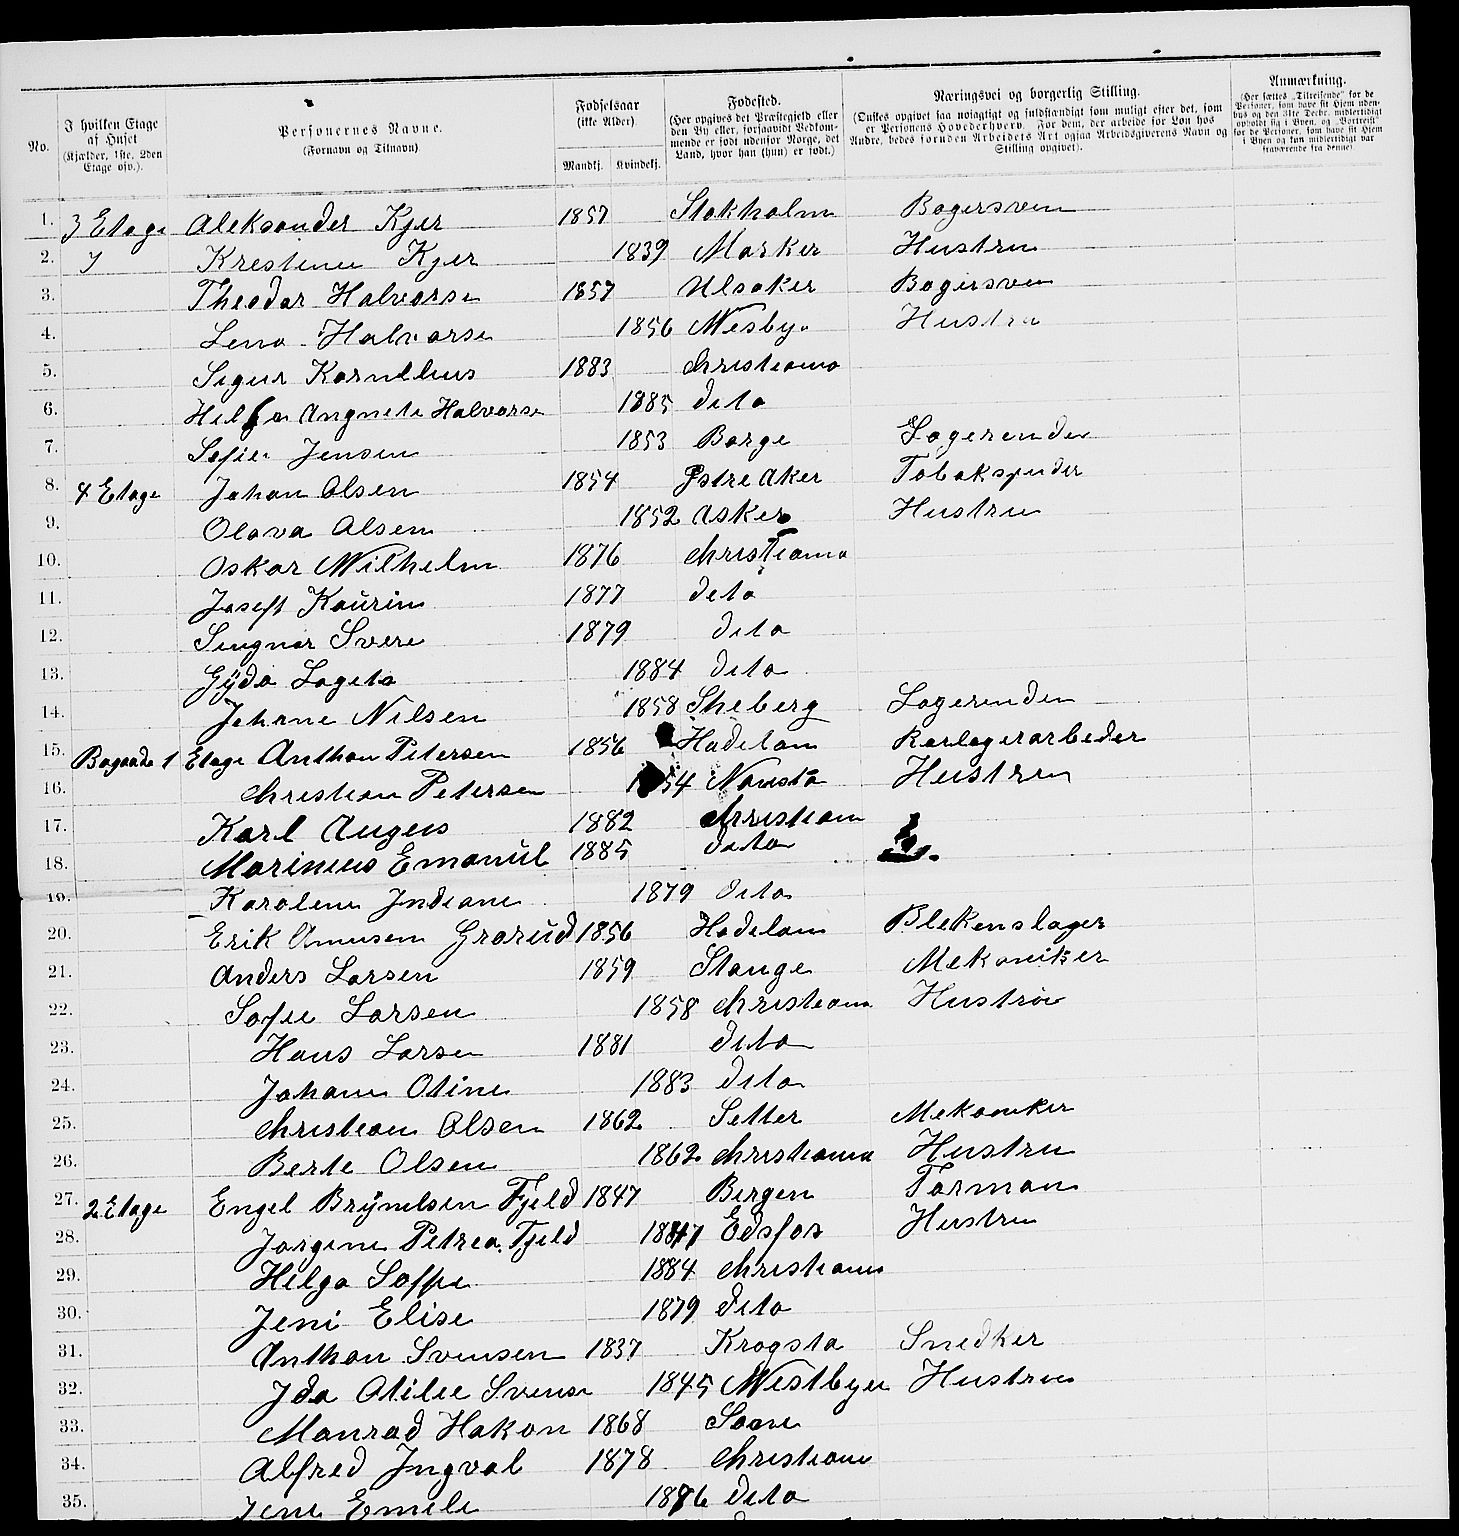 No.
I hvilken Etage af Huset (Kjælder, 1ste, 2den Etage osv.).
Personernes Navne. (Fornavn og Tilnavn)
Fødselsaar (ikke Alder). Mandkj. Kvindekj.
Fødested. (Her opgives det Præstegjeld eller den By eller, forsaavidt Vedkommende er født udenfor Norge, det Land, hvor han (hun) er født.)
Næringsvei og borgerlig Stilling. (Ønskes opgivet saa nøiagtigt og fuldstændigt som muligt efter det, som er Personens Hovederhverv. For dem, der arbeide for Løn hos Andre, bedes foruden Arbeidets Art ogsaa Arbeidsgiverens Navn og Stilling opgivet).
Anmærkning. (Her sættes „Tilreisende" for de Personer, som have sit Hjem udenbys og den 31te Decbr. midlertidigt opholdt sig i Byen, og „Bortreist" for de Personer, som have sit Hjem i Byen og kun midlertidigt var fraværende fra denne).
1. 3 Etage Aleksander Kjer 1857 Stokholm Bagersven
2. Krestine Kjer 1839 Marker Hustru
3. Theodor Halvorse 1857 Ulsaker Bagersven
4. Lena Halvorse 1856 Nesbye Hustru
5. Sigur Kornelius 1883 christiana
6. Helga Angnete Halvorse 1885 dito
7. Sofie Jensen 1853 Borge Logerende
8. 4 Etage Johan Olsen 1854 Østre Aker Tobakspinder
9. Olava Olsen 1852 Asker Hustru
10. Oskar Wilhelm 1876 christiana
11. Josef Kaurin 1877 deto
12. Singnar Svere 1879 dito
13. Gyda Lageta 1884 dito
14. Johane Nilsen 1858 Skeberg Logerenden
15. Bagaade 1 Etage Anthon Petersen 1856 Hadelan Rorlagerarbeder
16. christian Petersen 54 Hustru
17. Karl Augus 1882 christian
18. Marinius Emanuel 1885 dito
19. Karoline Indiane 1879 dito
20. Erik Amusen Grorud 1856 Hadelan Blekenslager
21. Anders Larsen 1859 Stange Mekaniker
22. Sofie Larsen 1858 christiana Hustru
23. Hans Larse 1881 dito
24. Johane Otine 1883 dito
25. christian Olsen 1862 Setter Mekaniker
26. Berte Olsen 1862 christiania Hustru
27. 2 Etage Engel Brynelsen Fjeld 1847 Bergen Forman
28. Jørgine Petrea Fjeld 1847 Edsfos Hustru
29. Helga Soffie 1884 christiana
30. Jeni Elise 1879 dito
31. Anthon Svensen 1837 Krogsta Snedker
32. Ida Otilie Svense 1845 Westbyen Hustrue
33. Monrad Hakon 1868 Soone
34. Alfred Ingval 1878 christiana
35. Jene Emile 1876 dito